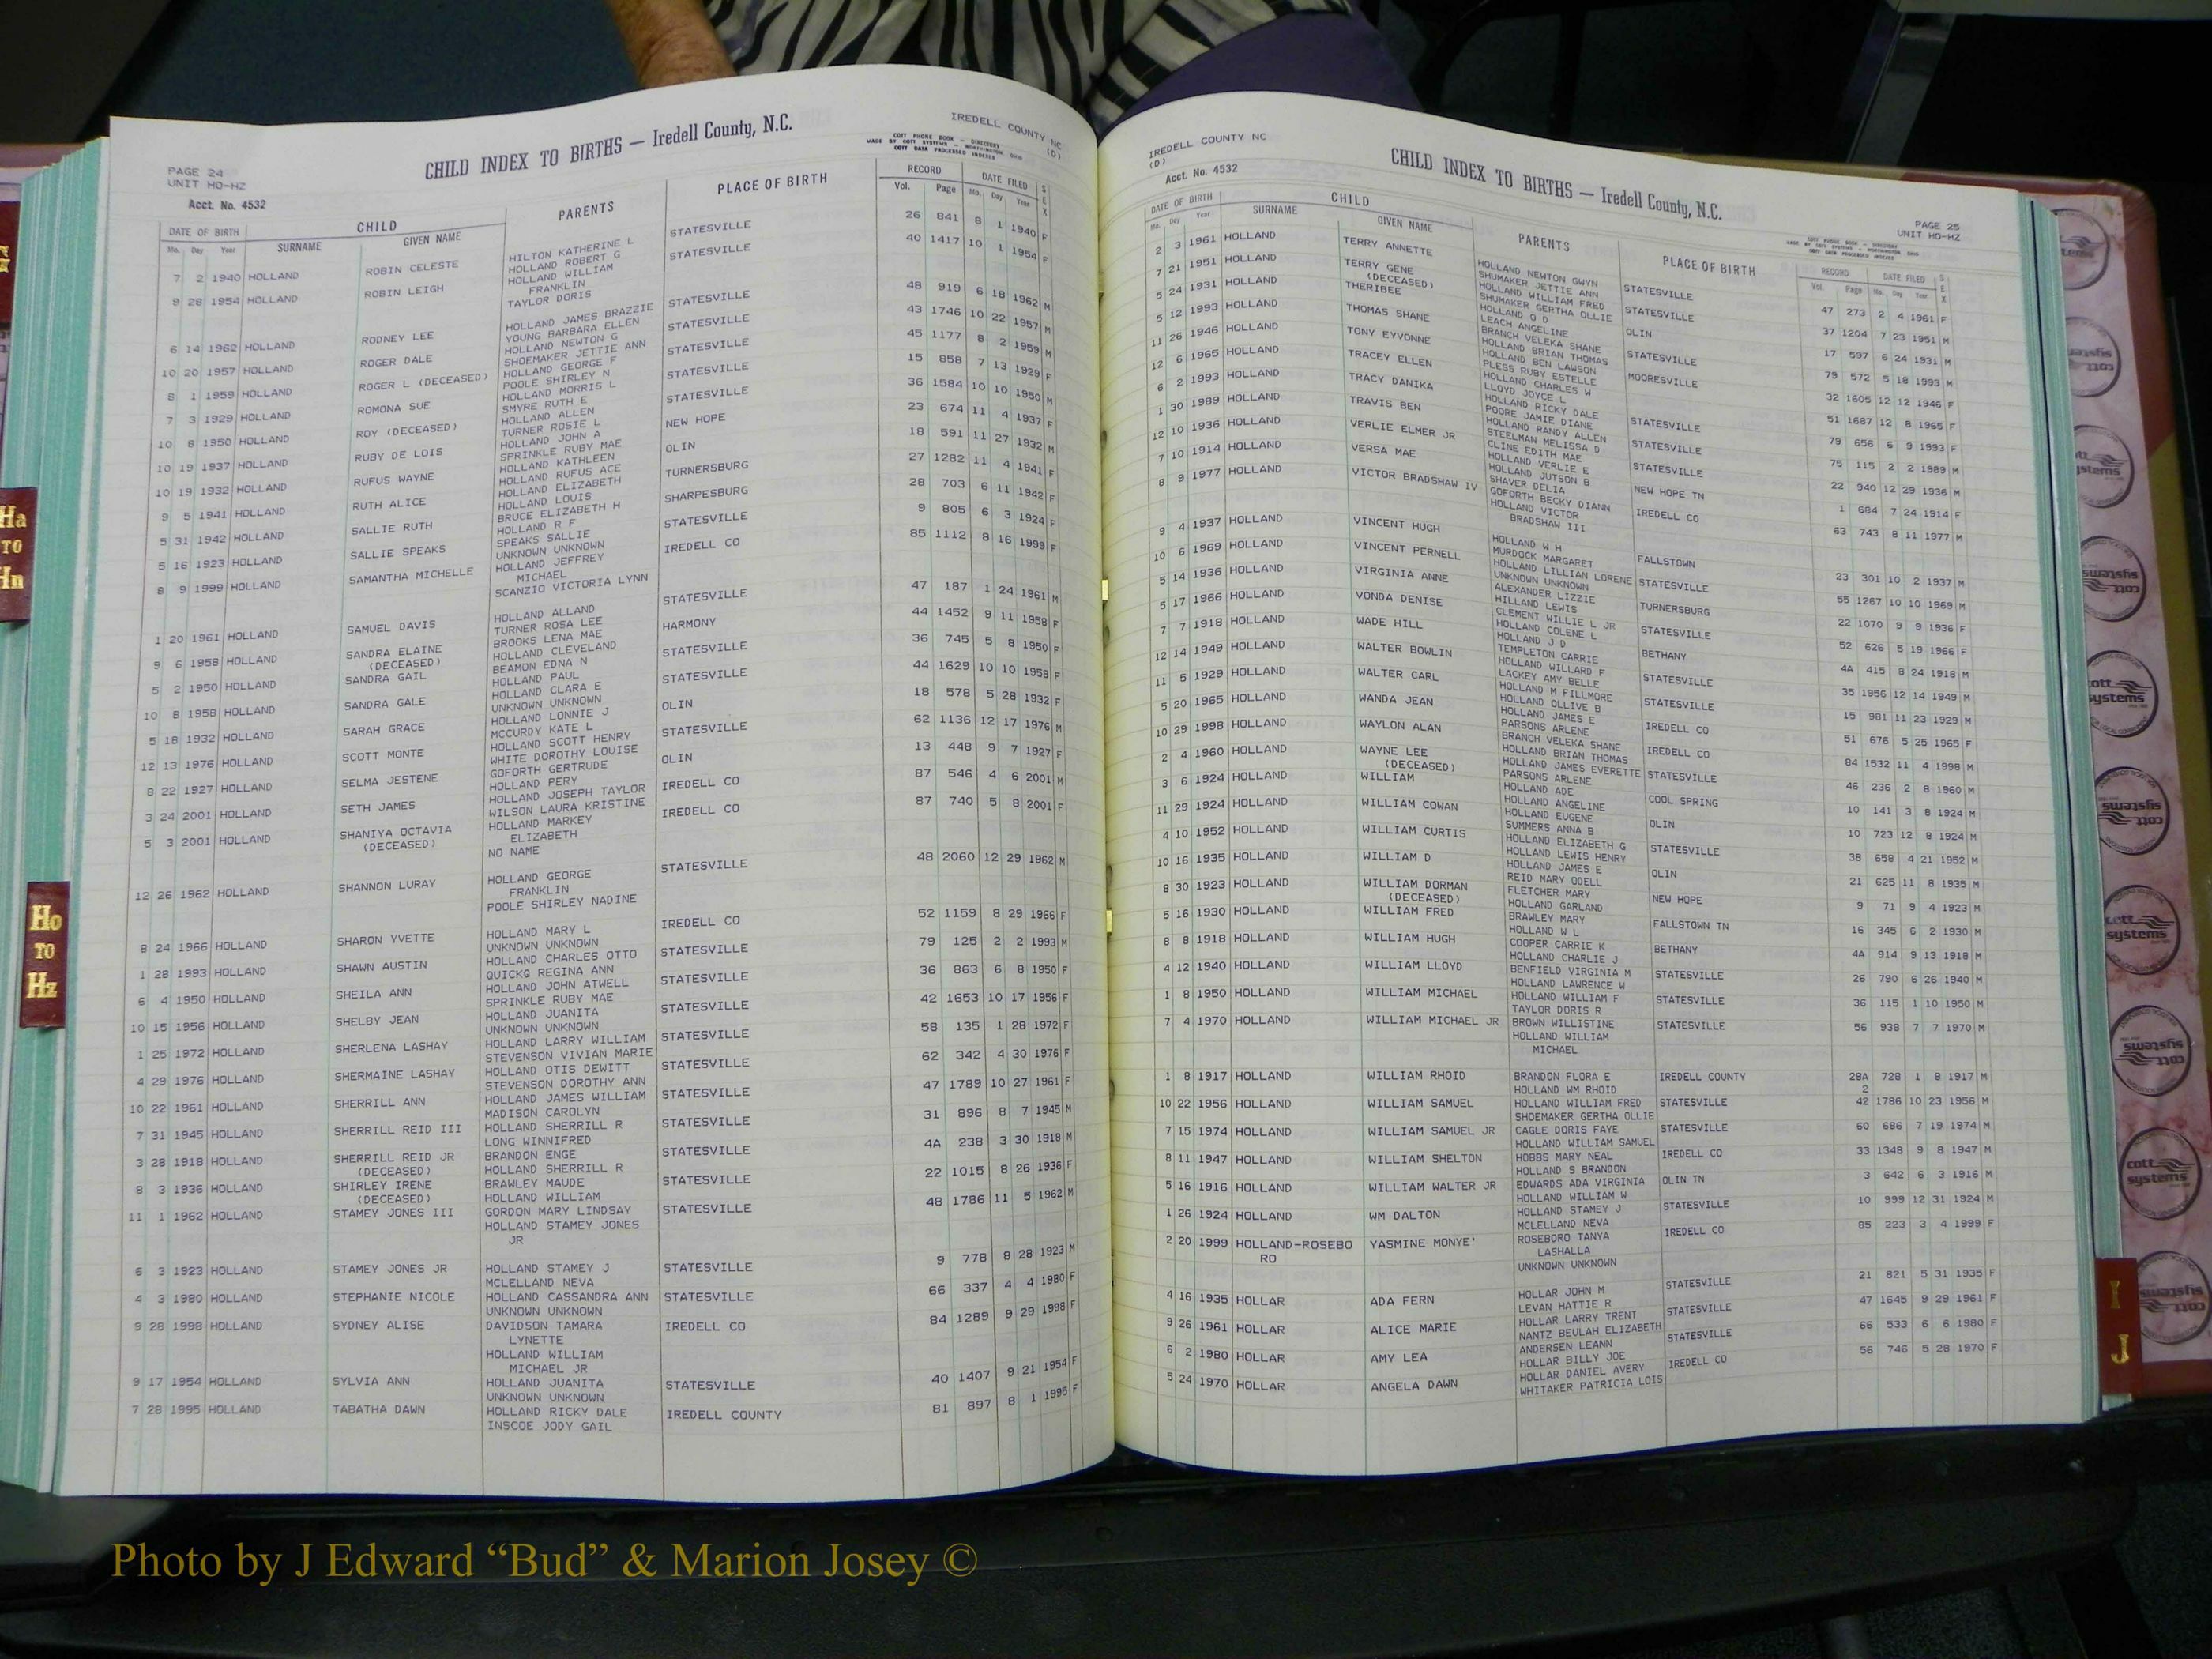 IREDELL COUNTY NC
(D)
CHILD INDEX TO BIRTHS — Iredell County, N.C.
COTT PHONE BOOK - DIRECTORY
MADE BY COTT SYSTEMS - WORTHINGTON, OHIO
COTT DATA PROCESSED INDEXES
PAGE 24
UNIT HO-HZ
Acct. No. 4532
DATE OF BIRTH CHILD PARENTS PLACE OF BIRTH RECORD DATE FILED SEX
Mo. Day Year SURNAME GIVEN NAME Vol. Page Mo. Day Year
7 2 1940 HOLLAND ROBIN CELESTE HILTON KATHERINE L STATESVILLE 26 841 8 1 1940 F
HOLLAND ROBERT G
9 28 1954 HOLLAND ROBIN LEIGH HOLLAND WILLIAM STATESVILLE 40 1417 10 1 1954 F
FRANKLIN
TAYLOR DORIS
6 14 1962 HOLLAND RODNEY LEE HOLLAND JAMES BRAZZIE STATESVILLE 48 919 6 18 1962 M
YOUNG BARBARA ELLEN
10 20 1957 HOLLAND ROGER DALE HOLLAND NEWTON G STATESVILLE 43 1746 10 22 1957 M
SHOEMAKER JETTIE ANN
8 1 1959 HOLLAND ROGER L (DECEASED) HOLLAND GEORGE F STATESVILLE 45 1177 8 2 1959 M
POOLE SHIRLEY N
7 3 1929 HOLLAND ROMONA SUE HOLLAND MORRIS L STATESVILLE 15 858 7 13 1929 F
SMYRE RUTH E
10 8 1950 HOLLAND ROY (DECEASED) HOLLAND ALLEN STATESVILLE 36 1584 10 10 1950 M
TURNER ROSIE L
10 19 1937 HOLLAND RUBY DE LOIS HOLLAND JOHN A NEW HOPE 23 674 11 4 1937 F
SPRINKLE RUBY MAE
10 19 1932 HOLLAND RUFUS WAYNE HOLLAND KATHLEEN OLIN 18 591 11 27 1932 M
HOLLAND RUFUS ACE
9 5 1941 HOLLAND RUTH ALICE HOLLAND ELIZABETH TURNERSBURG 27 1282 11 4 1941 F
HOLLAND LOUIS
5 31 1942 HOLLAND SALLIE RUTH BRUCE ELIZABETH H SHARPESBURG 28 703 6 11 1942 F
HOLLAND R F
5 16 1923 HOLLAND SALLIE SPEAKS SPEAKS SALLIE STATESVILLE 9 805 6 3 1924 F
UNKNOWN UNKNOWN
8 9 1999 HOLLAND SAMANTHA MICHELLE HOLLAND JEFFREY IREDELL CO 85 1112 8 16 1999 F
MICHAEL
SCANZIO VICTORIA LYNN
1 20 1961 HOLLAND SAMUEL DAVIS HOLLAND ALLAND STATESVILLE 47 187 1 24 1961 M
TURNER ROSA LEE
9 6 1958 HOLLAND SANDRA ELAINE BROOKS LENA MAE HARMONY 44 1452 9 11 1958 F
(DECEASED) HOLLAND CLEVELAND
5 2 1950 HOLLAND SANDRA GAIL BEAMON EDNA N STATESVILLE 36 745 5 8 1950 F
HOLLAND PAUL
10 8 1958 HOLLAND SANDRA GALE HOLLAND CLARA E STATESVILLE 44 1629 10 10 1958 F
UNKNOWN UNKNOWN
5 18 1932 HOLLAND SARAH GRACE HOLLAND LONNIE J OLIN 18 578 5 28 1932 F
MCCURDY KATE L
12 13 1976 HOLLAND SCOTT MONTE HOLLAND SCOTT HENRY STATESVILLE 62 1136 12 17 1976 M
WHITE DOROTHY LOUISE
8 22 1927 HOLLAND SELMA JESTENE GOFORTH GERTRUDE OLIN 13 448 9 7 1927 F
HOLLAND PERY
3 24 2001 HOLLAND SETH JAMES HOLLAND JOSEPH TAYLOR IREDELL CO 87 546 4 6 2001 M
WILSON LAURA KRISTINE
5 3 2001 HOLLAND SHANIYA OCTAVIA HOLLAND MARKEY IREDELL CO 87 740 5 8 2001 F
(DECEASED) ELIZABETH
NO NAME
12 26 1962 HOLLAND SHANNON LURAY HOLLAND GEORGE STATESVILLE 48 2060 12 29 1962 M
FRANKLIN
POOLE SHIRLEY NADINE
8 24 1966 HOLLAND SHARON YVETTE HOLLAND MARY L IREDELL CO 52 1159 8 29 1966 F
UNKNOWN UNKNOWN
1 28 1993 HOLLAND SHAWN AUSTIN HOLLAND CHARLES OTTO STATESVILLE 79 125 2 2 1993 M
QUICKQ REGINA ANN
6 4 1950 HOLLAND SHEILA ANN HOLLAND JOHN ATWELL STATESVILLE 36 863 6 8 1950 F
SPRINKLE RUBY MAE
10 15 1956 HOLLAND SHELBY JEAN HOLLAND JUANITA STATESVILLE 42 1653 10 17 1956 F
UNKNOWN UNKNOWN
1 25 1972 HOLLAND SHERLENA LASHAY HOLLAND LARRY WILLIAM STATESVILLE 58 135 1 28 1972 F
STEVENSON VIVIAN MARIE
4 29 1976 HOLLAND SHERMAINE LASHAY HOLLAND OTIS DEWITT STATESVILLE 62 342 4 30 1976 F
STEVENSON DOROTHY ANN
10 22 1961 HOLLAND SHERRILL ANN HOLLAND JAMES WILLIAM STATESVILLE 47 1789 10 27 1961 F
MADISON CAROLYN
7 31 1945 HOLLAND SHERRILL REID III HOLLAND SHERRILL R STATESVILLE 31 896 8 7 1945 M
LONG WINNIFRED
3 28 1918 HOLLAND SHERRILL REID JR BRANDON ENGE STATESVILLE 4A 238 3 30 1918 M
(DECEASED) HOLLAND SHERRILL R
8 3 1936 HOLLAND SHIRLEY IRENE BRAWLEY MAUDE STATESVILLE 22 1015 8 26 1936 F
(DECEASED) HOLLAND WILLIAM
11 1 1962 HOLLAND STAMEY JONES III GORDON MARY LINDSAY STATESVILLE 48 1786 11 5 1962 M
HOLLAND STAMEY JONES
JR
6 3 1923 HOLLAND STAMEY JONES JR HOLLAND STAMEY J STATESVILLE 9 778 8 28 1923 M
MCLELLAND NEVA
4 3 1980 HOLLAND STEPHANIE NICOLE HOLLAND CASSANDRA ANN STATESVILLE 66 337 4 4 1980 F
UNKNOWN UNKNOWN
9 28 1998 HOLLAND SYDNEY ALISE DAVIDSON TAMARA IREDELL CO 84 1289 9 29 1998 F
LYNETTE
HOLLAND WILLIAM
MICHAEL JR
9 17 1954 HOLLAND SYLVIA ANN HOLLAND JUANITA STATESVILLE 40 1407 9 21 1954 F
UNKNOWN UNKNOWN
7 28 1995 HOLLAND TABATHA DAWN HOLLAND RICKY DALE IREDELL COUNTY 81 897 8 1 1995 F
INSCOE JODY GAIL
IREDELL COUNTY NC
(D)
Acct. No. 4532
CHILD INDEX TO BIRTHS — Iredell County, N.C.
PAGE 25
UNIT HO-HZ
COTT PHONE BOOK - DIRECTORY
MADE BY COTT SYSTEMS - WORTHINGTON, OHIO
COTT DATA PROCESSED INDEXES
DATE OF BIRTH CHILD PARENTS PLACE OF BIRTH RECORD DATE FILED SEX
Mo. Day Year SURNAME GIVEN NAME Vol. Page Mo. Day Year
2 3 1961 HOLLAND TERRY ANNETTE HOLLAND NEWTON GWYN STATESVILLE 47 273 2 4 1961 F
SHUMAKER JETTIE ANN
7 21 1951 HOLLAND TERRY GENE HOLLAND WILLIAM FRED STATESVILLE 37 1204 7 23 1951 M
(DECEASED) SHUMAKER GERTHA OLLIE
5 24 1931 HOLLAND THERIBEE HOLLAND O D OLIN 17 597 6 24 1931 M
LEACH ANGELINE
5 12 1993 HOLLAND THOMAS SHANE BRANCH VELEKA SHANE STATESVILLE 79 572 5 18 1993 M
HOLLAND BRIAN THOMAS
11 26 1946 HOLLAND TONY EYVONNE HOLLAND BEN LAWSON MOORESVILLE 32 1605 12 12 1946 F
PLESS RUBY ESTELLE
12 6 1965 HOLLAND TRACEY ELLEN HOLLAND CHARLES W STATESVILLE 51 1687 12 8 1965 F
LLOYD JOYCE L
6 2 1993 HOLLAND TRACY DANIKA HOLLAND RICKY DALE STATESVILLE 79 656 6 9 1993 F
POORE JAMIE DIANE
1 30 1989 HOLLAND TRAVIS BEN HOLLAND RANDY ALLEN STATESVILLE 75 115 2 2 1989 M
STEELMAN MELISSA D
12 10 1936 HOLLAND VERLIE ELMER JR CLINE EDITH MAE NEW HOPE TN 22 940 12 29 1936 M
HOLLAND VERLIE E
7 10 1914 HOLLAND VERSA MAE HOLLAND JUTSON B IREDELL CO 1 684 7 24 1914 F
SHAVER DELIA
8 9 1977 HOLLAND VICTOR BRADSHAW IV GOFORTH BECKY DIANN 63 743 8 11 1977 M
HOLLAND VICTOR
BRADSHAW III
9 4 1937 HOLLAND VINCENT HUGH HOLLAND W H FALLSTOWN 23 301 10 2 1937 M
MURDOCK MARGARET
10 6 1969 HOLLAND VINCENT PERNELL HOLLAND LILLIAN LORENE STATESVILLE 55 1267 10 10 1969 M
UNKNOWN UNKNOWN
5 14 1936 HOLLAND VIRGINIA ANNE ALEXANDER LIZZIE TURNERSBURG 22 1070 9 9 1936 F
HILLAND LEWIS
5 17 1966 HOLLAND VONDA DENISE CLEMENT WILLIE L JR STATESVILLE 52 626 5 19 1966 F
HOLLAND COLENE L
7 7 1918 HOLLAND WADE HILL HOLLAND J D BETHANY 4A 415 8 24 1918 M
TEMPLETON CARRIE
12 14 1949 HOLLAND WALTER BOWLIN HOLLAND WILLARD F STATESVILLE 35 1956 12 14 1949 M
LACKEY AMY BELLE
11 5 1929 HOLLAND WALTER CARL HOLLAND M FILLMORE STATESVILLE 15 981 11 23 1929 M
HOLLAND OLLIVE B
5 20 1965 HOLLAND WANDA JEAN HOLLAND JAMES E IREDELL CO 51 676 5 25 1965 F
PARSONS ARLENE
10 29 1998 HOLLAND WAYLON ALAN BRANCH VELEKA SHANE IREDELL CO 84 1532 11 4 1998 M
HOLLAND BRIAN THOMAS
2 4 1960 HOLLAND WAYNE LEE HOLLAND JAMES EVERETTE STATESVILLE 46 236 2 8 1960 M
(DECEASED) PARSONS ARLENE
3 6 1924 HOLLAND WILLIAM HOLLAND ADE COOL SPRING 10 141 3 8 1924 M
HOLLAND ANGELINE
11 29 1924 HOLLAND WILLIAM COWAN HOLLAND EUGENE OLIN 10 723 12 8 1924 M
SUMMERS ANNA B
4 10 1952 HOLLAND WILLIAM CURTIS HOLLAND ELIZABETH G STATESVILLE 38 658 4 21 1952 M
HOLLAND LEWIS HENRY
10 16 1935 HOLLAND WILLIAM D HOLLAND JAMES E OLIN 21 625 11 8 1935 M
REID MARY ODELL
8 30 1923 HOLLAND WILLIAM DORMAN FLETCHER MARY NEW HOPE 9 71 9 4 1923 M
(DECEASED) HOLLAND GARLAND
5 16 1930 HOLLAND WILLIAM FRED BRAWLEY MARY FALLSTOWN TN 16 345 6 2 1930 M
HOLLAND W L
8 8 1918 HOLLAND WILLIAM HUGH COOPER CARRIE K BETHANY 4A 914 9 13 1918 M
HOLLAND CHARLIE J
4 12 1940 HOLLAND WILLIAM LLOYD BENFIELD VIRGINIA M STATESVILLE 26 790 6 26 1940 M
HOLLAND LAWRENCE W
1 8 1950 HOLLAND WILLIAM MICHAEL HOLLAND WILLIAM F STATESVILLE 36 115 1 10 1950 M
TAYLOR DORIS R
7 4 1970 HOLLAND WILLIAM MICHAEL JR BROWN WILLISTINE STATESVILLE 56 938 7 7 1970 M
HOLLAND WILLIAM
MICHAEL
1 8 1917 HOLLAND WILLIAM RHOID BRANDON FLORA E IREDELL COUNTY 28A 728 1 8 1917 M
HOLLAND WM RHOID 2
10 22 1956 HOLLAND WILLIAM SAMUEL HOLLAND WILLIAM FRED STATESVILLE 42 1786 10 23 1956 M
SHOEMAKER GERTHA OLLIE
7 15 1974 HOLLAND WILLIAM SAMUEL JR CAGLE DORIS FAYE STATESVILLE 60 686 7 19 1974 M
HOLLAND WILLIAM SAMUEL
8 11 1947 HOLLAND WILLIAM SHELTON HOBBS MARY NEAL IREDELL CO 33 1348 9 8 1947 M
HOLLAND S BRANDON
5 16 1916 HOLLAND WILLIAM WALTER JR EDWARDS ADA VIRGINIA OLIN TN 3 642 6 3 1916 M
HOLLAND WILLIAM W
1 26 1924 HOLLAND WM DALTON HOLLAND STAMEY J STATESVILLE 10 999 12 31 1924 M
MCLELLAND NEVA
2 20 1999 HOLLAND-ROSEBO YASMINE MONYE' ROSEBORO TANYA IREDELL CO 85 223 3 4 1999 F
RO LASHALLA
UNKNOWN UNKNOWN
4 16 1935 HOLLAR ADA FERN HOLLAR JOHN M STATESVILLE 21 821 5 31 1935 F
LEVAN HATTIE R
9 26 1961 HOLLAR ALICE MARIE HOLLAR LARRY TRENT STATESVILLE 47 1645 9 29 1961 F
NANTZ BEULAH ELIZABETH
6 2 1980 HOLLAR AMY LEA ANDERSEN LEANN STATESVILLE 66 533 6 6 1980 F
HOLLAR BILLY JOE
5 24 1970 HOLLAR ANGELA DAWN HOLLAR DANIEL AVERY IREDELL CO 56 746 5 28 1970 F
WHITAKER PATRICIA LOIS
Ha
TO
Hn
Ho
TO
Hz
I
J
cott
systems
Photo by J Edward “Bud” & Marion Josey ©